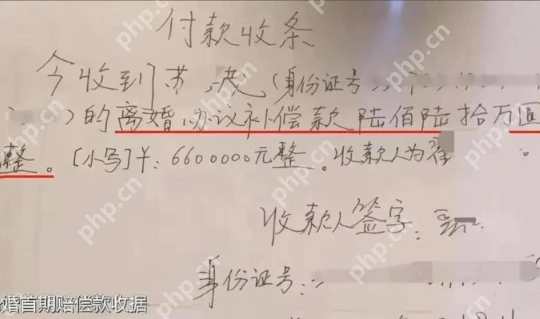 付款收条
今收到苏 (身份证号
)的离婚协议补偿款陆佰陆拾万圆
整。[小写]¥:6600000元整。收款人为
收款人签字:
身份证号:
婚首期赔偿款收据
php.cn